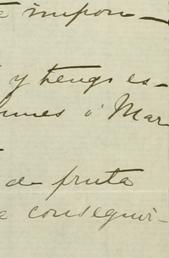 e impon-
y tengo es-
lunes ó Mar
de fruta
e consegui-